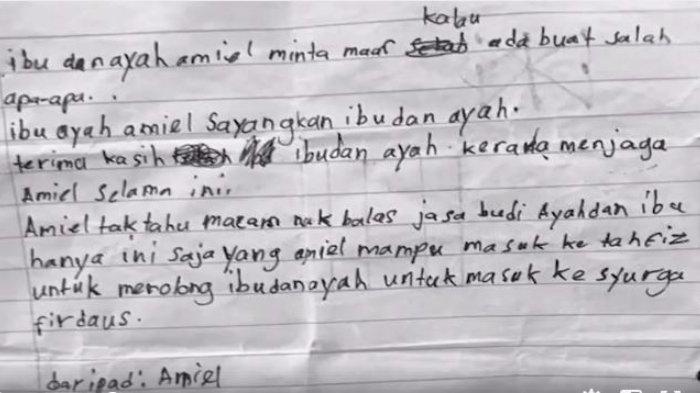 kalau
ibu dan ayah amiel minta maaf ada buat salah
apa-apa..
ibu ayah amiel sayangkan ibu dan ayah.
terima kasih ibu dan ayah. kerana menjaga
Amiel selama ini.
Amiel tak tahu macam nak balas jasa budi Ayah dan ibu
hanya ini saja yang amiel mampu masuk ke tahfiz
untuk menolong ibu dan ayah untuk masuk ke syurga
firdaus.
daripad: Amiel